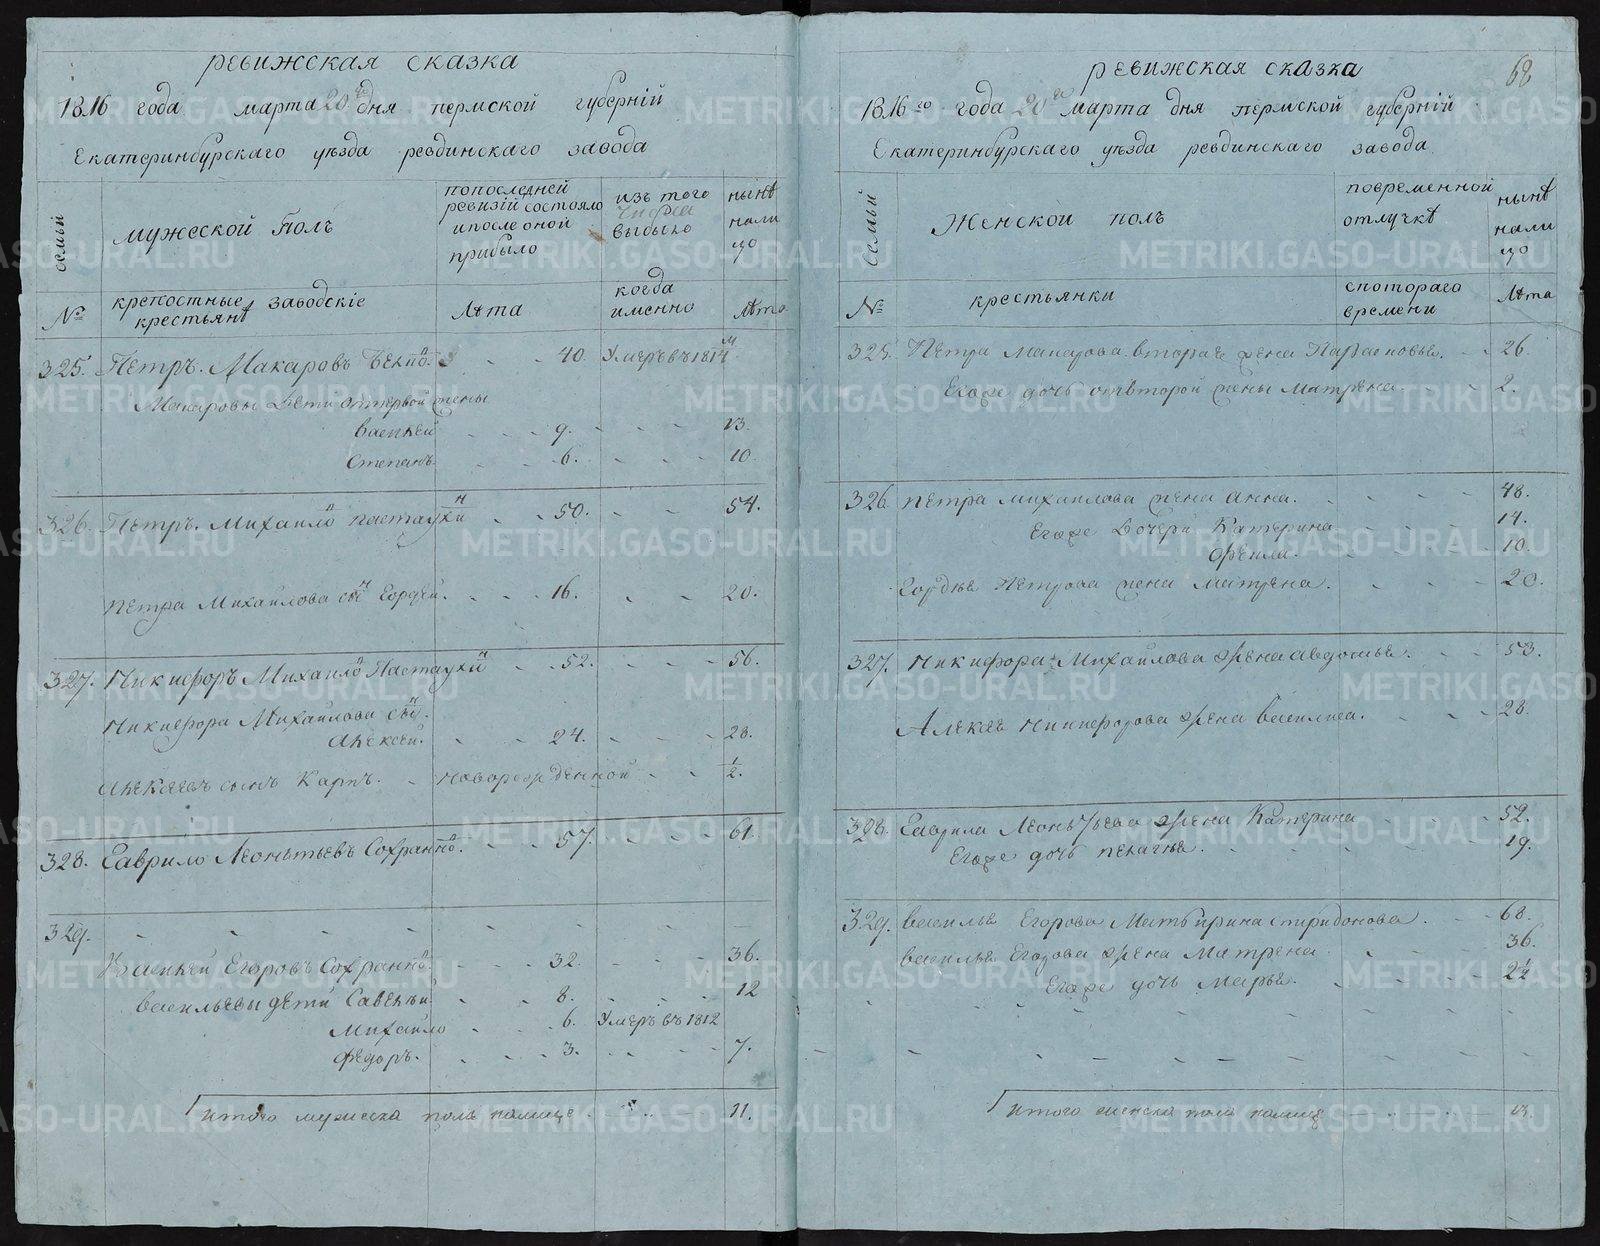 ревижская сказка
1816 года марта 20го дня пермской губернїй
Екатеринбурского уѣзда ревдинскаго завода
семьй
мужеской Полъ
попоследней ревизїй состояло ипосле оной прибыло
изъ того числа выбыло
нынѣ нали цо
№
крепостные заводскіе крестьянѣ
Лѣта
когда именно
Лѣта
325. Петръ. Макаровъ 40. Умеръ въ 1814м
Макаровы Дети отпервой жены
Василей 9. 13.
Степанъ 6. 10.
326. Петръ. Михайло Пастаухи 50. 54.
Петра Михайлова сынъ Гордей. 16. 20.
327. Никифоръ Михайло Пастаухи 52. 56.
Никифора Михайлова сынъ.
Алексей. 24. 28.
Алексеевъ сынъ Карпъ. новорожденной ½.
328. Гаврило Леонтьевъ Сохранно. 57. 61.
329.
Василей Егоровъ Сохранно. 32. 36.
Васильевы дети Савелей. 8. 12
Михайло 6. Умеръ въ 1812
Федоръ. 3. 7.
Итого мужеска полъ налице 11.
68
ревижская сказка
1816го года 20го марта дня пермской губернїй
Екатеринбурскаго уѣзда ревдинскаго завода
семьй
Женской полъ
повременной отлучкѣ
нынѣ нали цо
№
крестьянки
скотораго времени
Лѣта
325. Петра Макарова вторая жена Парасковья. 26.
Егоже дочь отвторой жены Матрена. 2.
326. Петра михайлова жена Анна. 48.
Егоже Дочери Катерина 14.
Фекла. 10.
Гордѣя Петрова жена Матрена. 20.
327. Никифора Михайлова жена Авдотья. 53.
Алексѣя Никифорова жена Василиса. 28.
328. Гаврила Леонтьева жена Катерина 52.
Егоже дочь пелагѣя. 19.
329. Василья Егорова Мать Ирина Спиридонова. 68.
Василья Егорова жена Матрена. 36.
Егоже дочь Марья. 2½
Итого женска пола налице 13.
METRIKI.GASO-URAL.RU